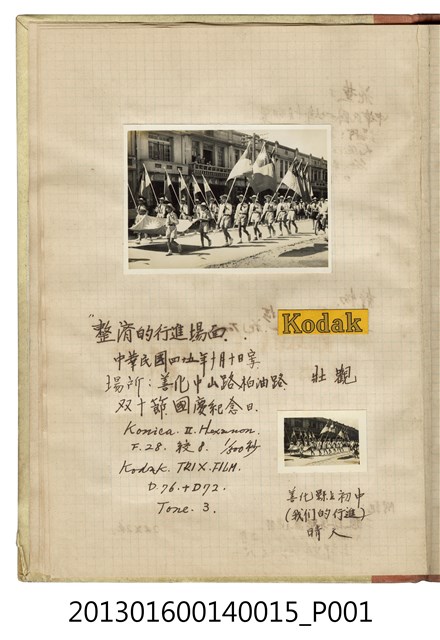 "整濟的行進場面..
Kodak
中華民國四五年十月十日寫
場所:善化中山路柏油路
壯觀
双十節國慶紀念日.
Konica. II. Hexanon.
F.28. 絞8. 1/500秒
Kodak. TRIX. FILM.
D.76.+D72.
Tone. 3.
善化縣立初中
(我们的行進)
晴天
201301600140015_P001